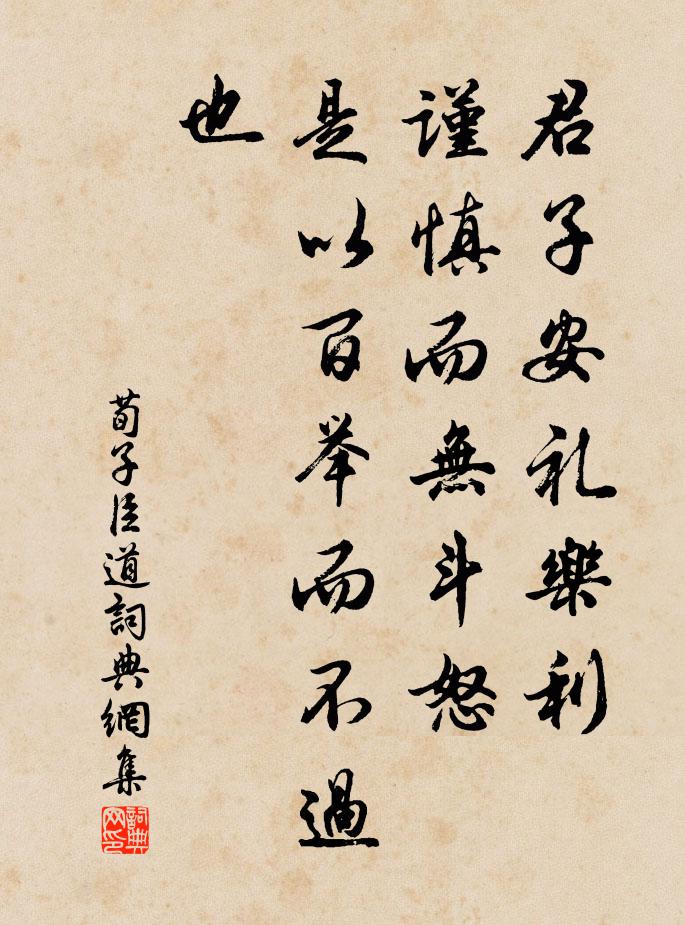 君子安礼樂利
謹慎而無斗怒
是以百举而不過
也
荀子臣道詞典網集
詞典网印